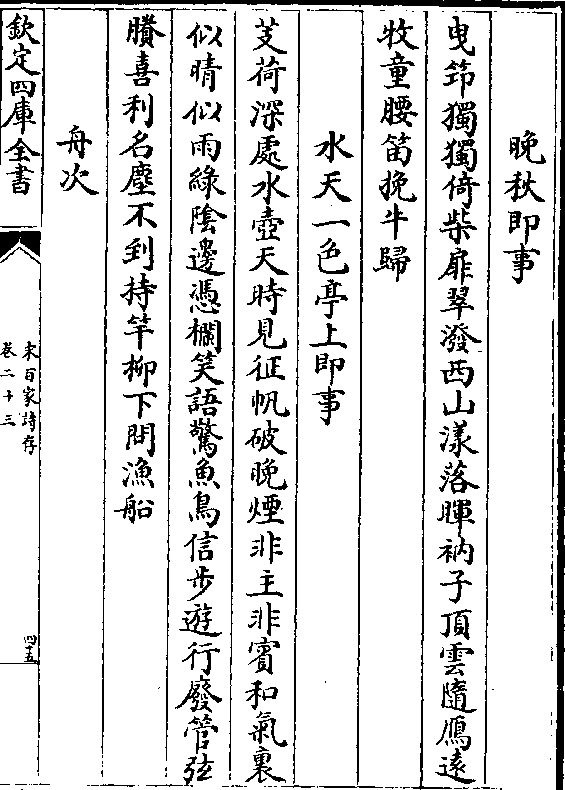 晚秋即事
曳笻獨獨倚柴扉翠潑西山漾落暉衲子頂雲隨鴈遠
牧童腰笛挽牛歸
水天一色亭上即事
芰荷深處水壺天時見征帆破晚煙非主非賓和氣裏
似晴似雨綠陰邊憑欄笑語驚魚鳥信步遊行廢管弦
賸喜利名塵不到持竿柳下問漁船
舟次
欽定四庫全書
宋百家詩存
卷二十三
四五